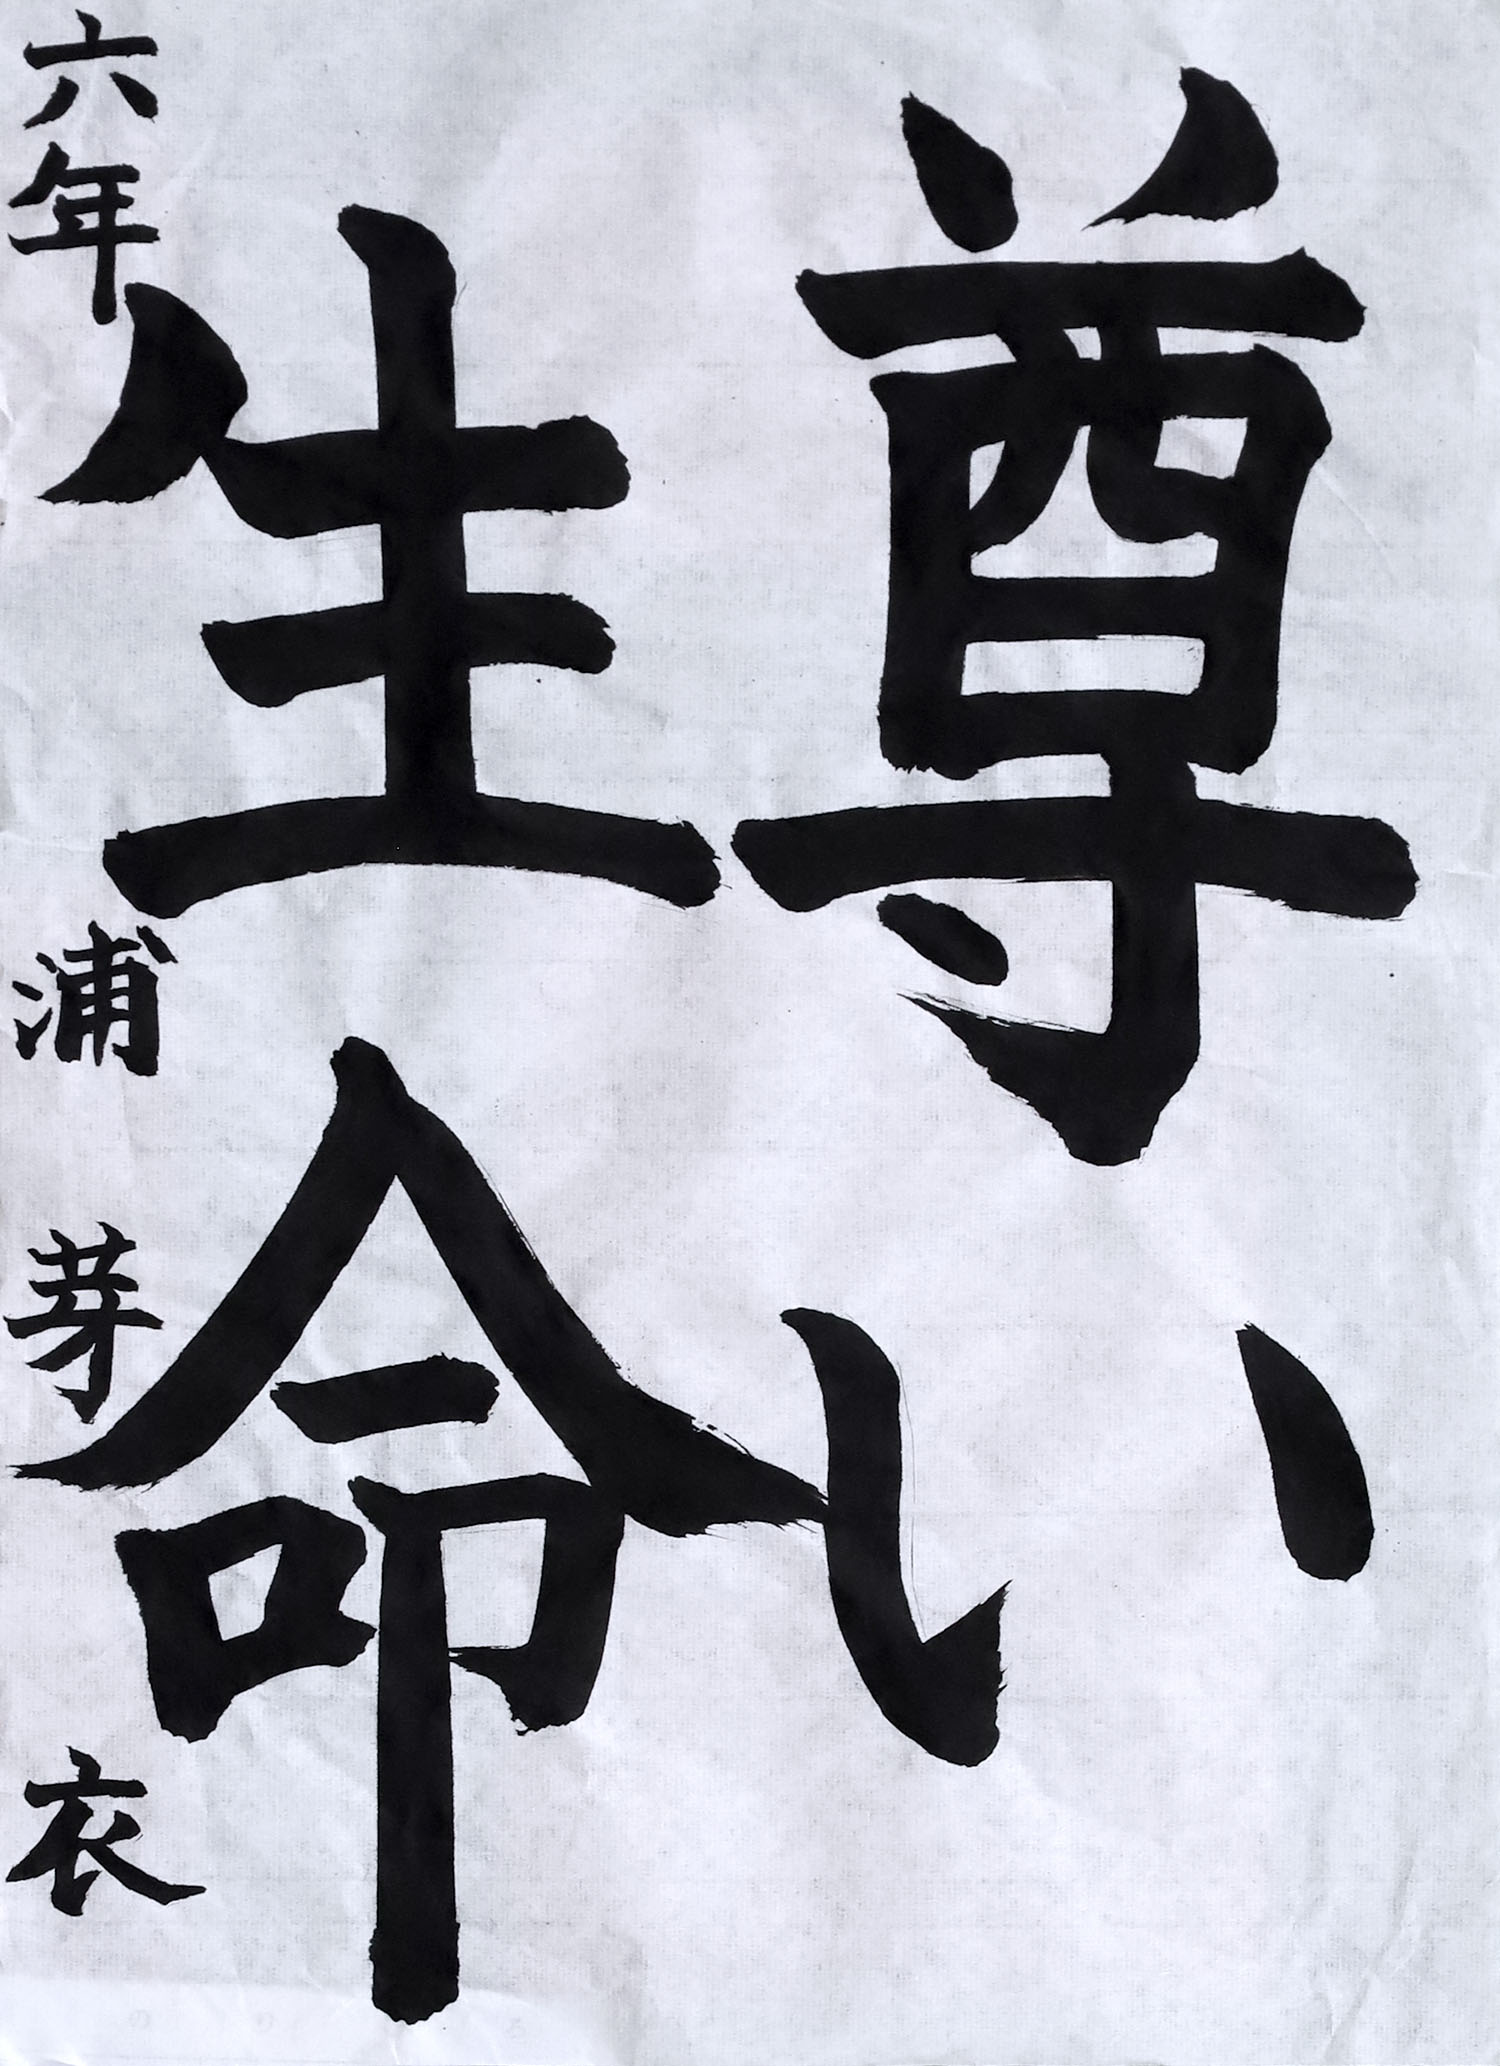 尊い
生命
六年 浦 芽 衣